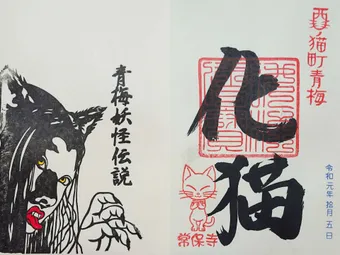 猫町青梅
令和元年 拾月 五日
化猫
常保寺
青梅妖怪伝説